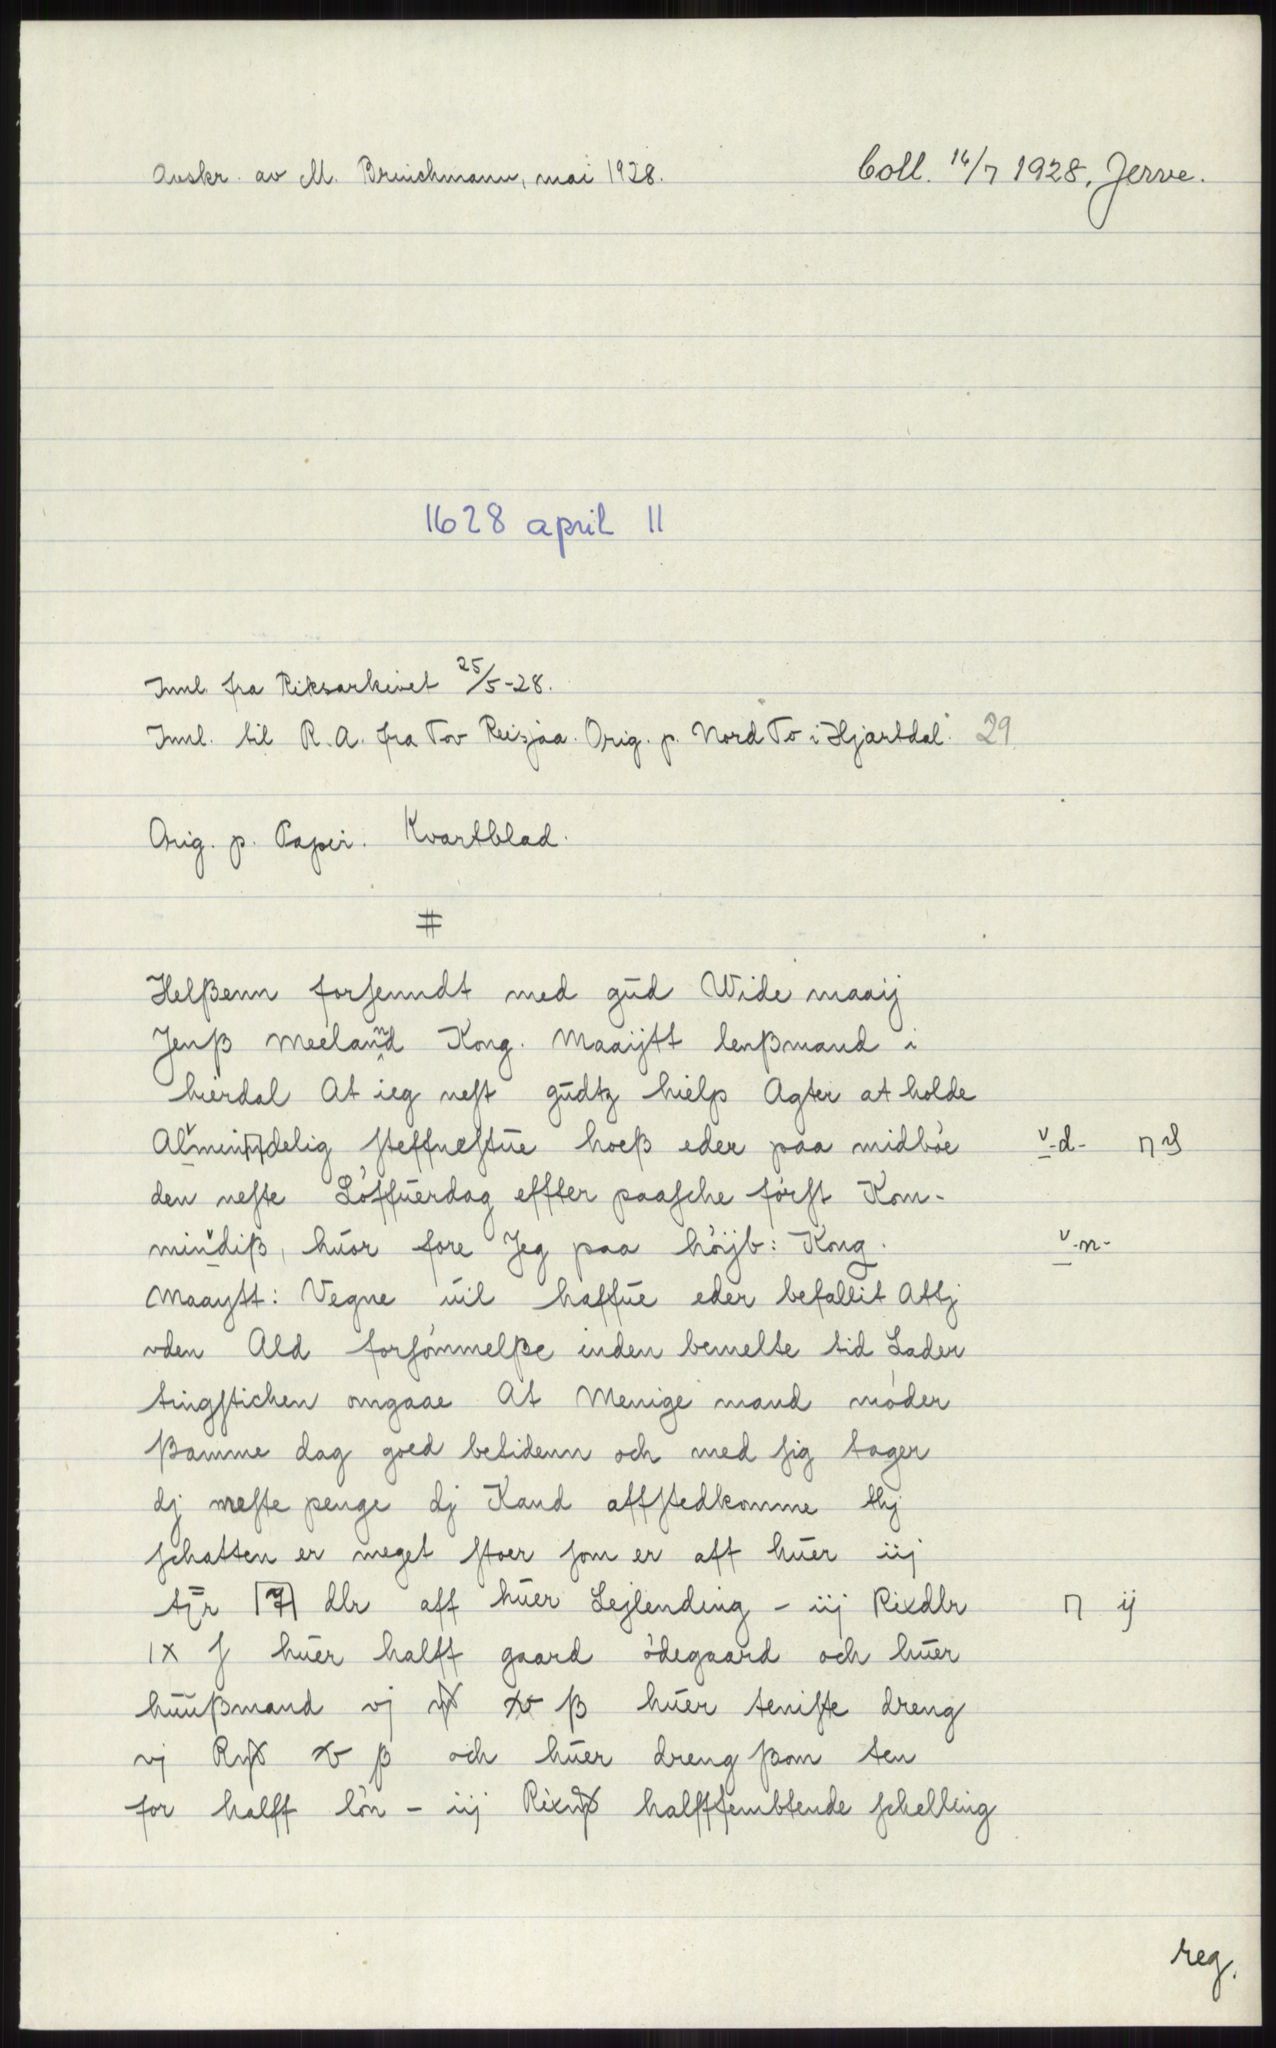 Avskr. av M. Brinchmann, mai 1928.
Coll. 14/7 1928, Jerve.
1628 april 11
Innl. fra Riksarkivet 25/5-28.
Innl. til R. A. fra Tov Reisjaa. Orig. p. Nord To i Hjartdal. 29
Orig. p. Papir. Kvartblad.
#
Helßenn forſenndt med gud Wide maaij
Jenß Meelannd Kong. Maaijtt lenßmand i
hierdal At ieg neſt gudtz hielp Agter at holde
Almeinndelig ſteffneſtue hoeß eder paa midbøe v-d- ꓶ ſ
den neſte Løffuerdag effter paaſche førſt Kom-
mindiß, huor fore Jeg paa høijb: Kong. v-n-
Maaytt: Vegne uil haffue eder befallit Attj
vden Ald forſømmelße inden bemelte tid Lader
tingſtichen omgaae At Menige mand møder
ßamme dag goed betidenn och med ſig tager
dj meſte penge dj Kand affſtedkomme thj
ſchatten er meget ſtoer ſom er aff huer iij
dlr aff huer Lejlending - iij Rixdlr ꓶ ij
ix ſ huer halff gaard ødegaard och huer
huußmand vj ß huer teniſte dreng
vj ß och huer dreng ßom ten
for halff løn - iij halfffembtende ſchelling
reg.